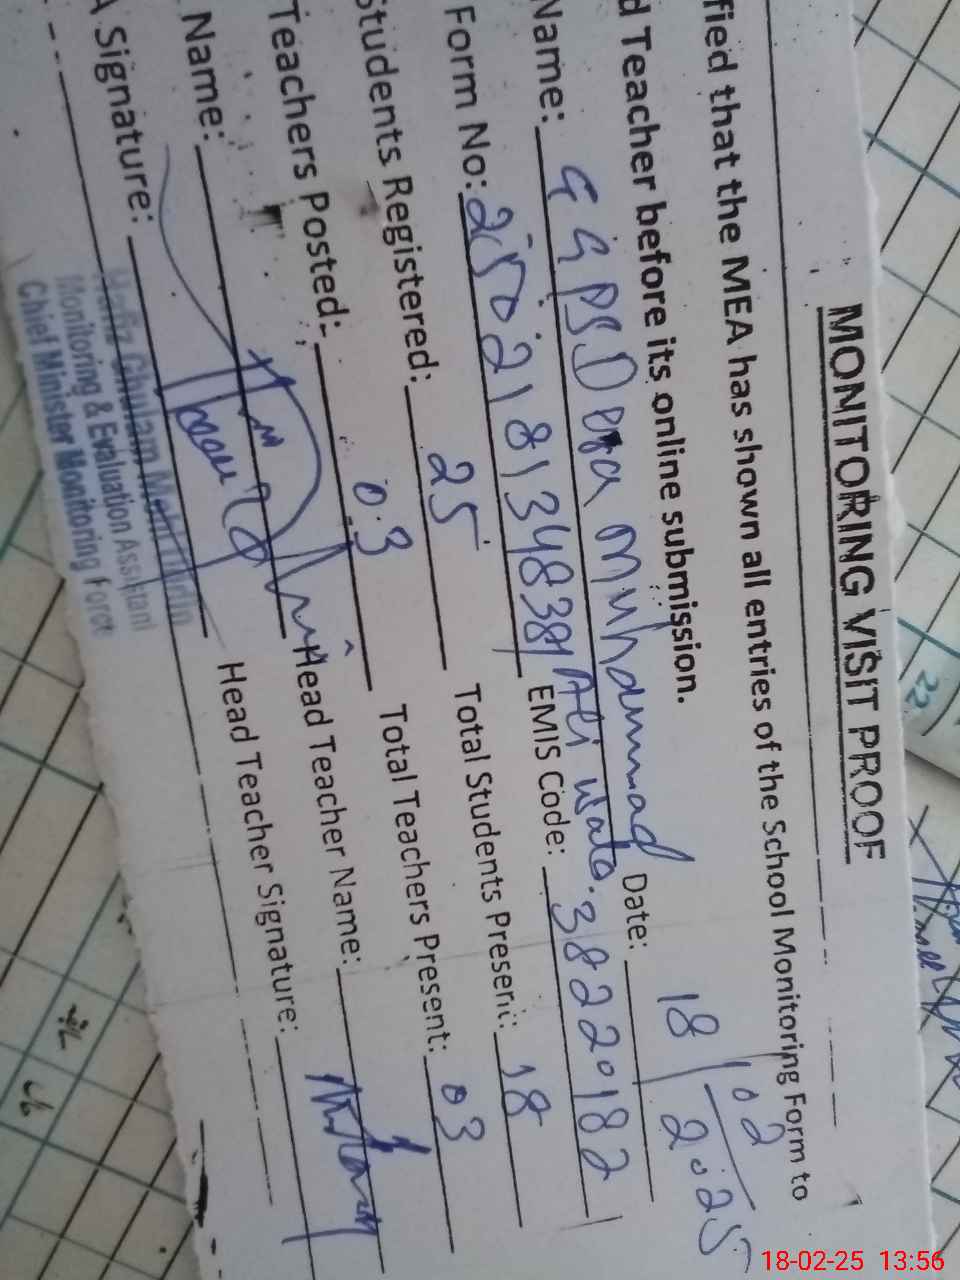 MONITORING VISIT PROOF
fied that the MEA has shown all entries of the School Monitoring Form to
d Teacher before its online submission.
Name: GGPS Dera Muhammad Ali wala. Date: 18/02/2025
Form No: EMIS Code: 38220182
Students Registered: 25 Total Students Present: 18
Teachers Posted: 03 Total Teachers Present: 03
Name: Head Teacher Name:
A Signature: Head Teacher Signature:
Hafiz Ghulam Mohiuddin
Monitoring & Evaluation Assistant
Chief Minister Monitoring Force
22
18-02-25 13:56